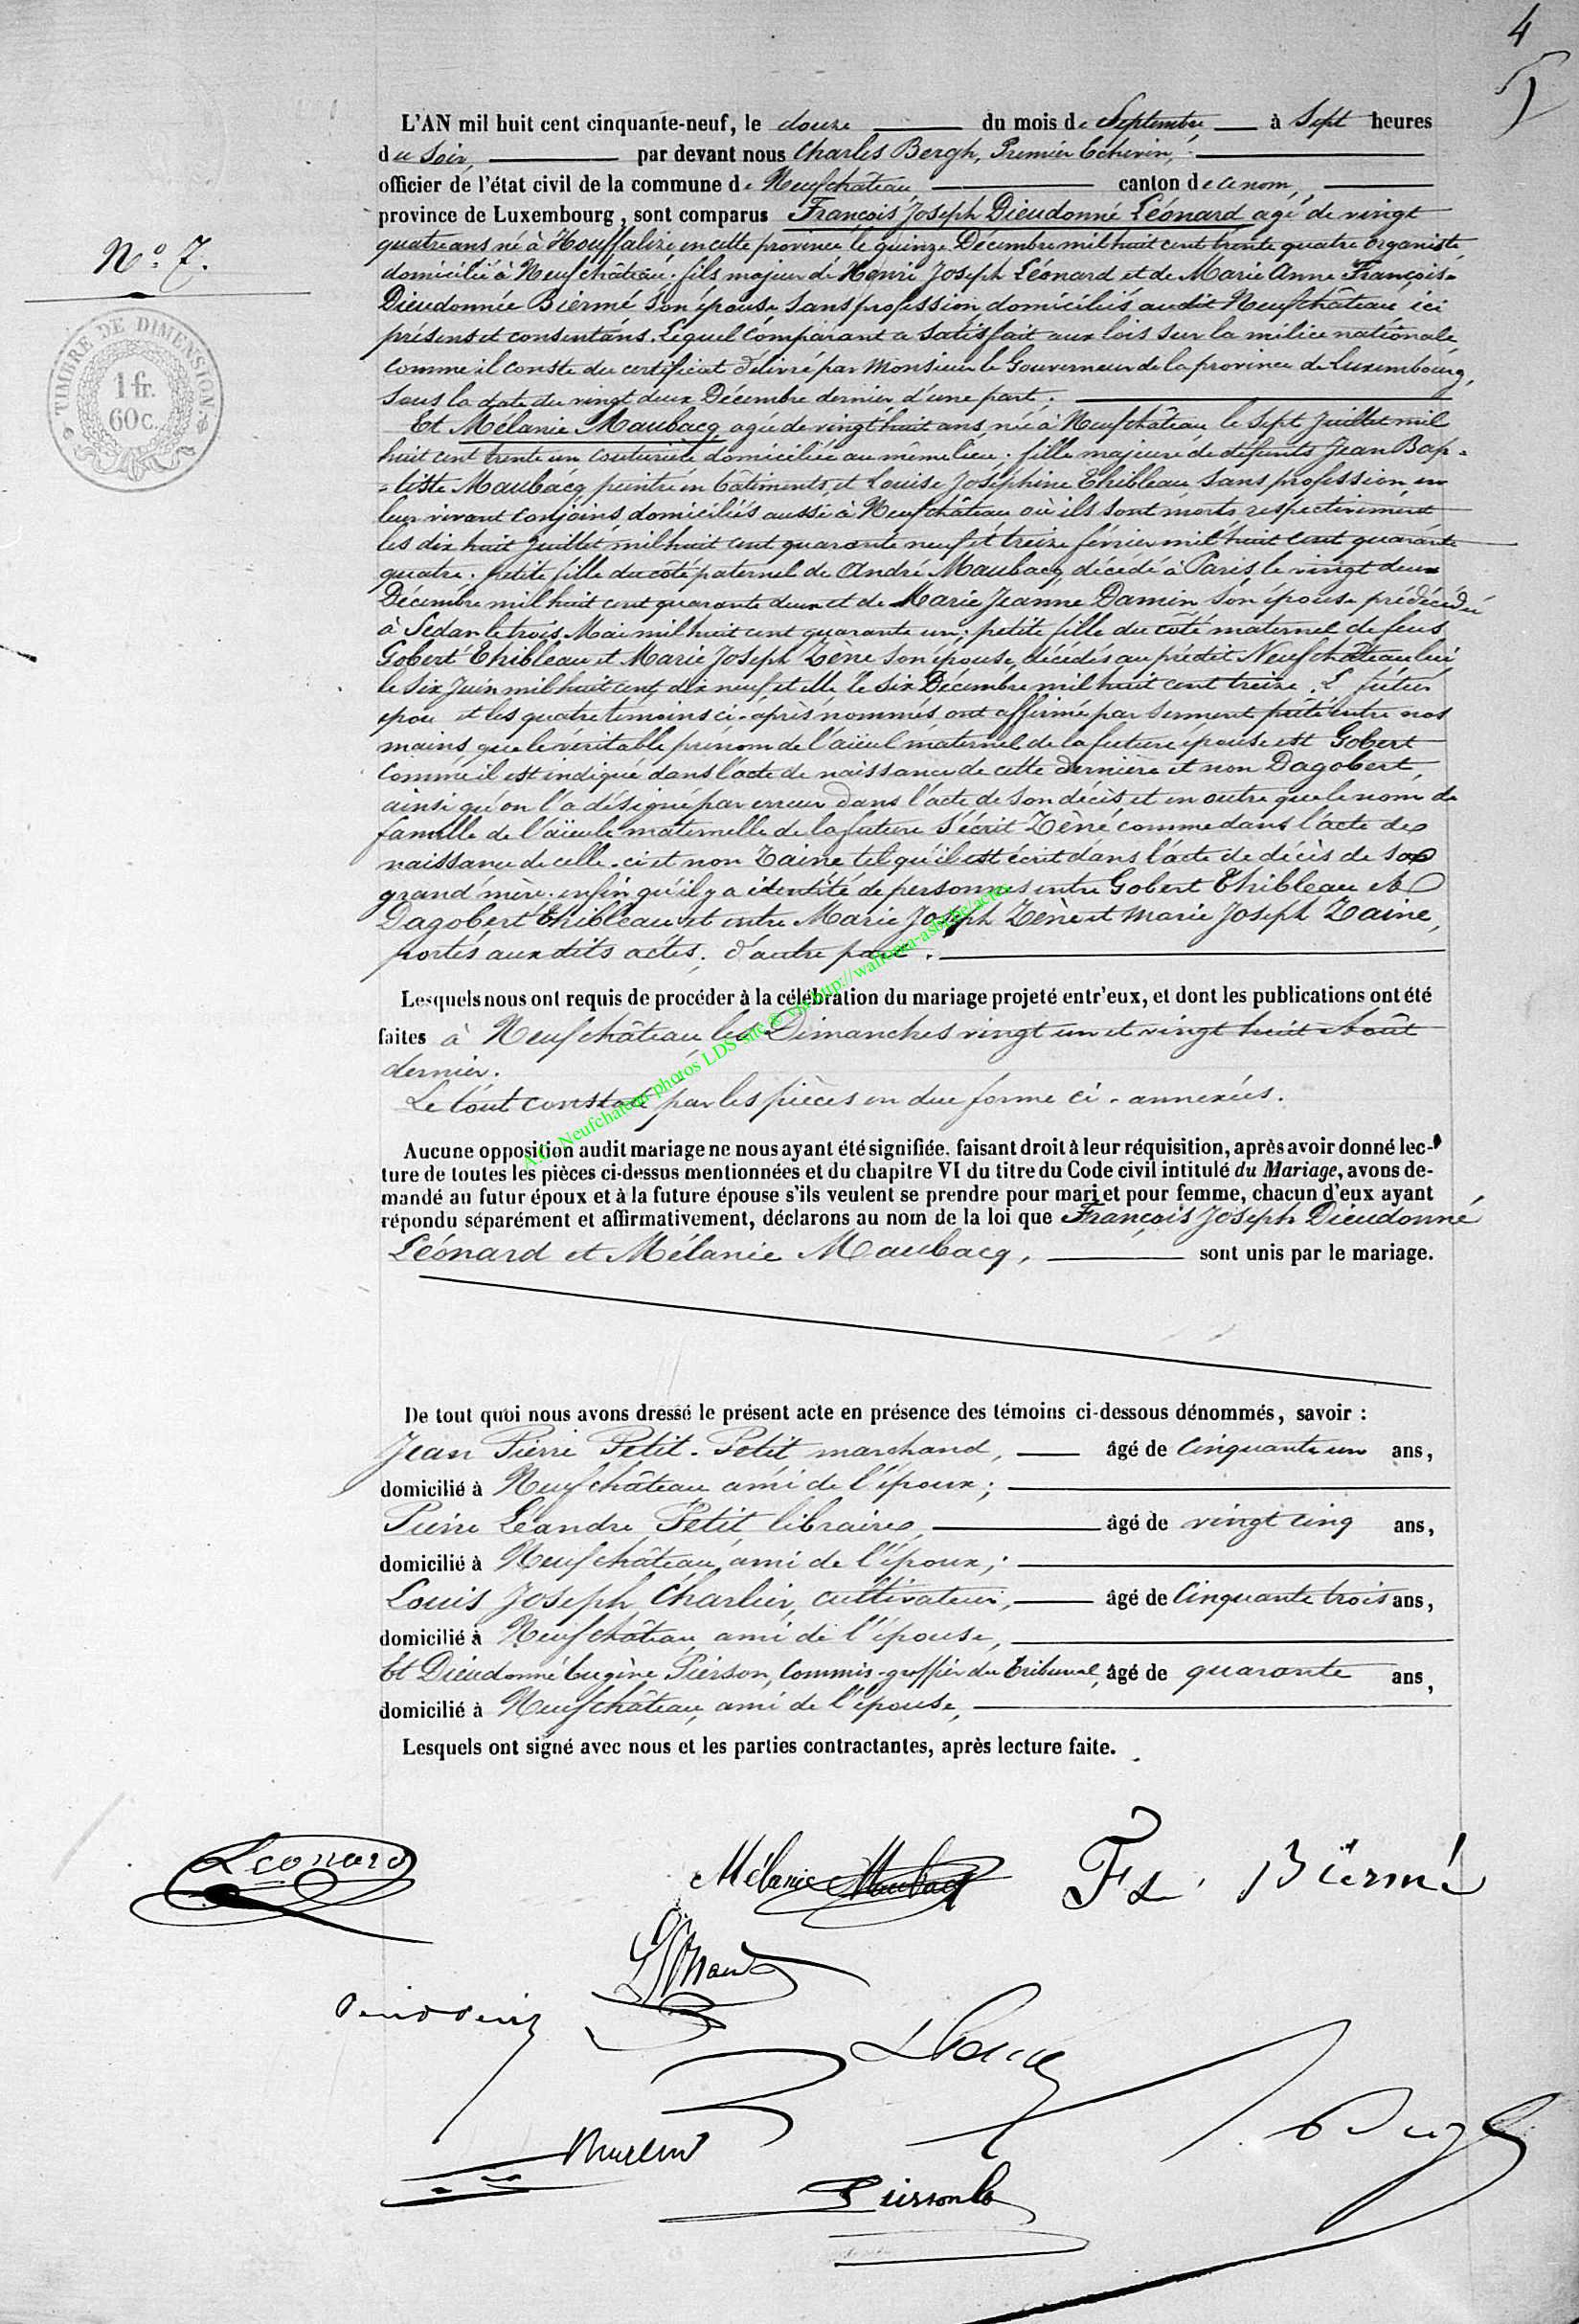 4
5
L'AN mil huit cent cinquante-neuf, le douze du mois de Septembre à Sept heures
du Soir, par devant nous Charles Bergh, Premier Echevin,
officier de l'état civil de la commune de Neufchâteau, canton de ce nom,
province de Luxembourg, sont comparus François Joseph Dieudonné Léonard agé de vingt
quatre ans né à Houffalize en cette province le quinze Décembre mil huit cent trente quatre organiste
domicilié à Neufchâteau; fils majeur de Henri Joseph Léonard et de Marie Anne François-
Dieudonnée Biermé son épouse sans profession domiciliés audit Neufchâteau ici
présens et consentans. Lequel Comparant a satisfait aux lois sur la milice nationale
comme il conste du certificat délivré par Monsieur le Gouverneur de la province de Luxembourg,
sous la date du vingt deux Décembre dernier d'une part;
Et Mélanie Maubacq agée de vingt huit ans, née à Neufchâteau le sept Juillet mil
huit cent trente un couturière domiciliée au même lieu; fille majeure de défunts Jean Bap-
-tiste Maubacq peintre en bâtiments, et Louise Joséphine Thibleau sans profession en
leur vivant conjoins domiciliés aussi à Neufchâteau où ils sont morts respectivement
les dix huit Juillet mil huit cent quarante neuf et treize février mil huit cent quarante
quatre; petite fille du côté paternel de André Maubacq décédé à Paris, le vingt deux
Décembre mil huit cent quarante deux et de Marie Jeanne Damin son épouse prédécédée
à Sedan le trois Mai mil huit cent quarante un; petite fille du coté maternel de feus
Gobert Thibleau et Marie Joseph Zène son épouse, décédés au prédit Neufchâteau lui
le six Juin mil huit cent dix neuf et elle, le six Décembre mil huit cent treize. L futur
epou et les quatre témoins ci-après nommés ont affirmé par serment prêté entre nos
mains, que le véritable prénom de l'aïeul maternel de la future épouse est Gobert
comme il est indiqué dans l'acte de naissance de cette dernière et non Dagobert,
ainsi qu'on l'a désigné par erreur dans l'acte de son décès, et en outre que le nom de
famille de l'aïeule maternelle de la future s'écrit Zène comme dans l'acte de
naissance de celle-ci et non Zaine tel qu'il est écrit dans l'acte de décès de sa
grand'mère; enfin qu'il y a identité de personnes entre Gobert Thibleau et
Dagobert Thibleau et entre Marie Joseph Zène et Marie Joseph Zaine,
portés aux dits actes; d'autre part.
Lesquels nous ont requis de procéder à la célébration du mariage projeté entr'eux, et dont les publications ont été
faites à Neufchâteau les Dimanches vingt un et vingt huit Août
dernier.
Le tout constaté par les pièces en due forme ci-annexées.
Aucune opposition audit mariage ne nous ayant été signifiée, faisant droit à leur réquisition, après avoir donné lec-
ture de toutes les pièces ci-dessus mentionnées et du chapitre VI du titre du Code civil intitulé du Mariage, avons de-
mandé au futur époux et à la future épouse s'ils veulent se prendre pour mari et pour femme, chacun d'eux ayant
répondu séparément et affirmativement, déclarons au nom de la loi que François Joseph Dieudonné
Léonard et Mélanie Maubacq, sont unis par le mariage.
De tout quoi nous avons dressé le présent acte en présence des témoins ci-dessous dénommés, savoir :
Jean Pierre Petit-Petit marchand, âgé de Cinquante un ans,
domicilié à Neufchâteau ami de l'époux;
Pierre Léandre Petit, libraire, âgé de vingt cinq ans,
domicilié à Neufchâteau, ami de l'époux;
Louis Joseph Charlier, cultivateur, âgé de Cinquante trois ans,
domicilié à Neufchâteau ami de l'épouse,
Et Dieudonné Eugène Pierson, Commis-greffier du tribunal, âgé de quarante ans,
domicilié à Neufchâteau, ami de l'épouse,
Lesquels ont signé avec nous et les parties contractantes, après lecture faite.
N° 7.
TIMBRE DE DIMENSION
1 fr.
60 c.
Léonard
Mélanie Maubacq
Biermé